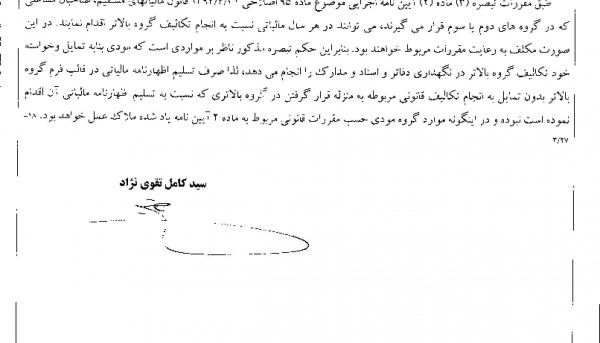 طبق مقررات تبصره (۳) ماده (۲) آیین نامه اجرایی موضوع ماده ۹۵ اصلاحی قانون مالیاتهای مستقیم، صاحبان مشاغلی
که در گروه های دوم یا سوم قرار می گیرند، می توانند در هر سال مالیاتی نسبت به انجام تکالیف گروه بالاتر اقدام نمایند. در این
صورت مکلف به رعایت مقررات مربوط خواهند بود. بنابراین حکم تبصره مذکور ناظر بر مواردی است که مودی بنابه تمایل وخواسته
خود تکالیف گروه بالاتر در نگهداری دفاتر و اسناد و مدارک را انجام می دهد، لذا صرف تسلیم اظهارنامه مالیاتی در قالب فرم گروه
بالاتر بدون تمایل به انجام تکالیف قانونی مربوطه به منزله قرار گرفتن در گروه بالاتری که نسبت به تسلیم ظهارنامه مالیاتی آن اقدام
نموده است نبوده و در اینگونه موارد گروه مودی حسب مقررات قانونی مربوط به ماده ۲ آیین نامه یاد شده ملاک عمل خواهد بود. ۱۸-
۳/۲۷
سید کامل تقوی نژاد